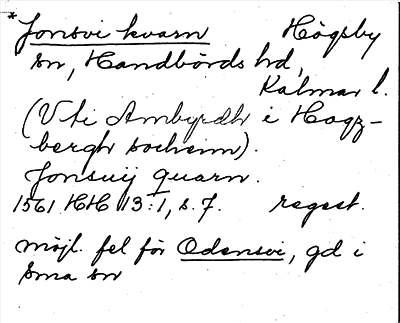 *Jonsvi kvarn Högsby
sn, Handbörds hd,
Kalmar l.
(Vti Ambyrdh i Hogz-
bergh sochenn).
Jonsuij quarn.
1561 HH 13:1, s. 7. regest.
möjl. fel för Odensvi, gd i
sma sn